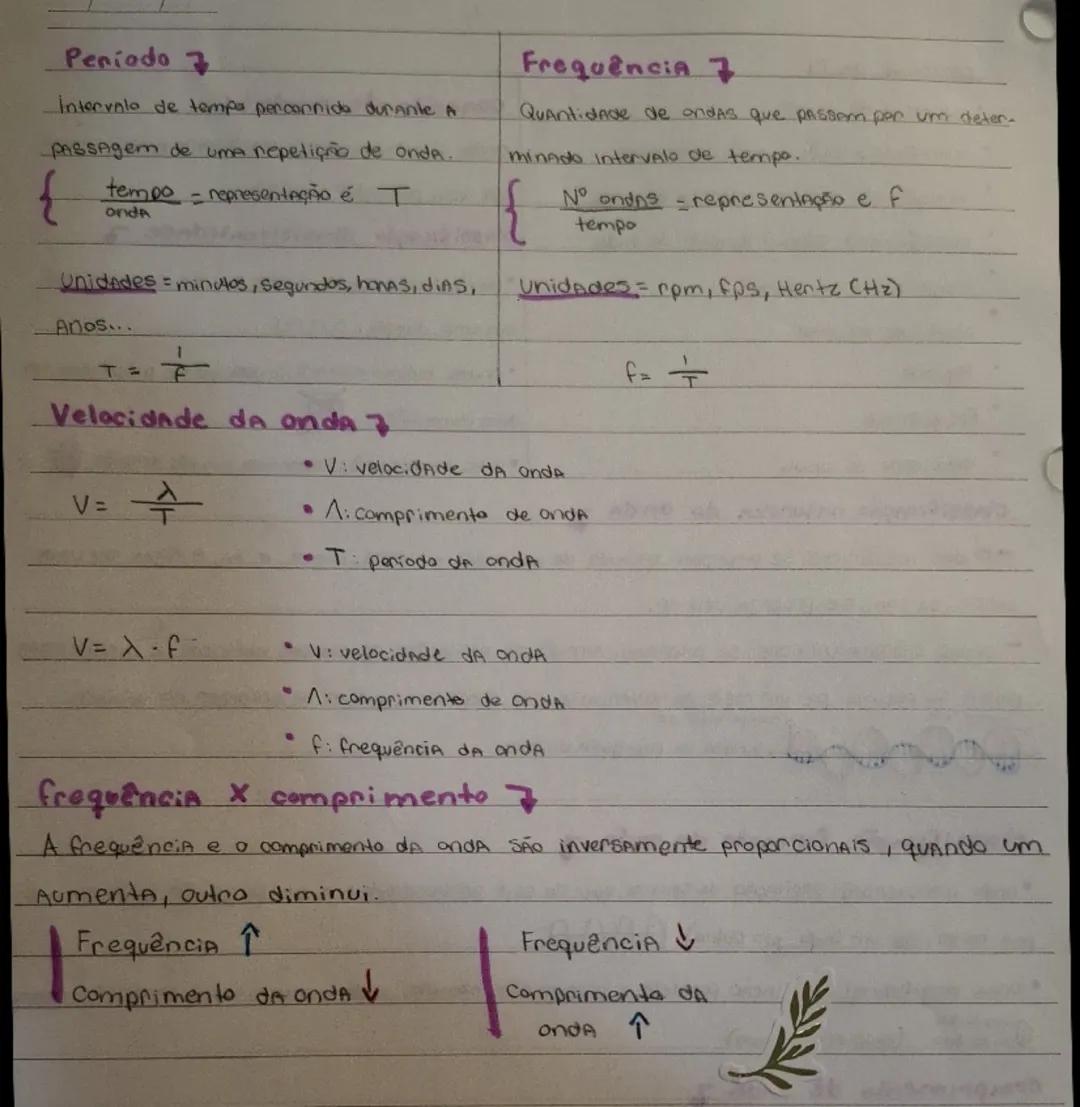 Período ↴
Intervalo de tempo percorrido durante a
passagem de uma repetição de onda.
{ tempo/onda = representação é T
Unidades = minutos, segundos, horas, dias,
Anos...
T = 1/f
Frequência ↴
Quantidade de ondas que passam por um deter-
minado intervalo de tempo.
{ Nº ondas/tempo = representação e f
Unidades = rpm, fps, Hertz (Hz)
f = 1/T
Velocidade da onda ↴
V = λ/T
• V: velocidade da onda
• Λ: comprimento de onda
• T: período da onda
V = λ · f
• V: velocidade da onda
• Λ: comprimento de onda
• f: frequência da onda
frequência X comprimento ↴
A frequência e o comprimento da onda são inversamente proporcionais, quando um
Aumenta, outro diminui.
Frequência ↑
Comprimento da onda ↓
Frequência ↓
Comprimento da
onda ↑